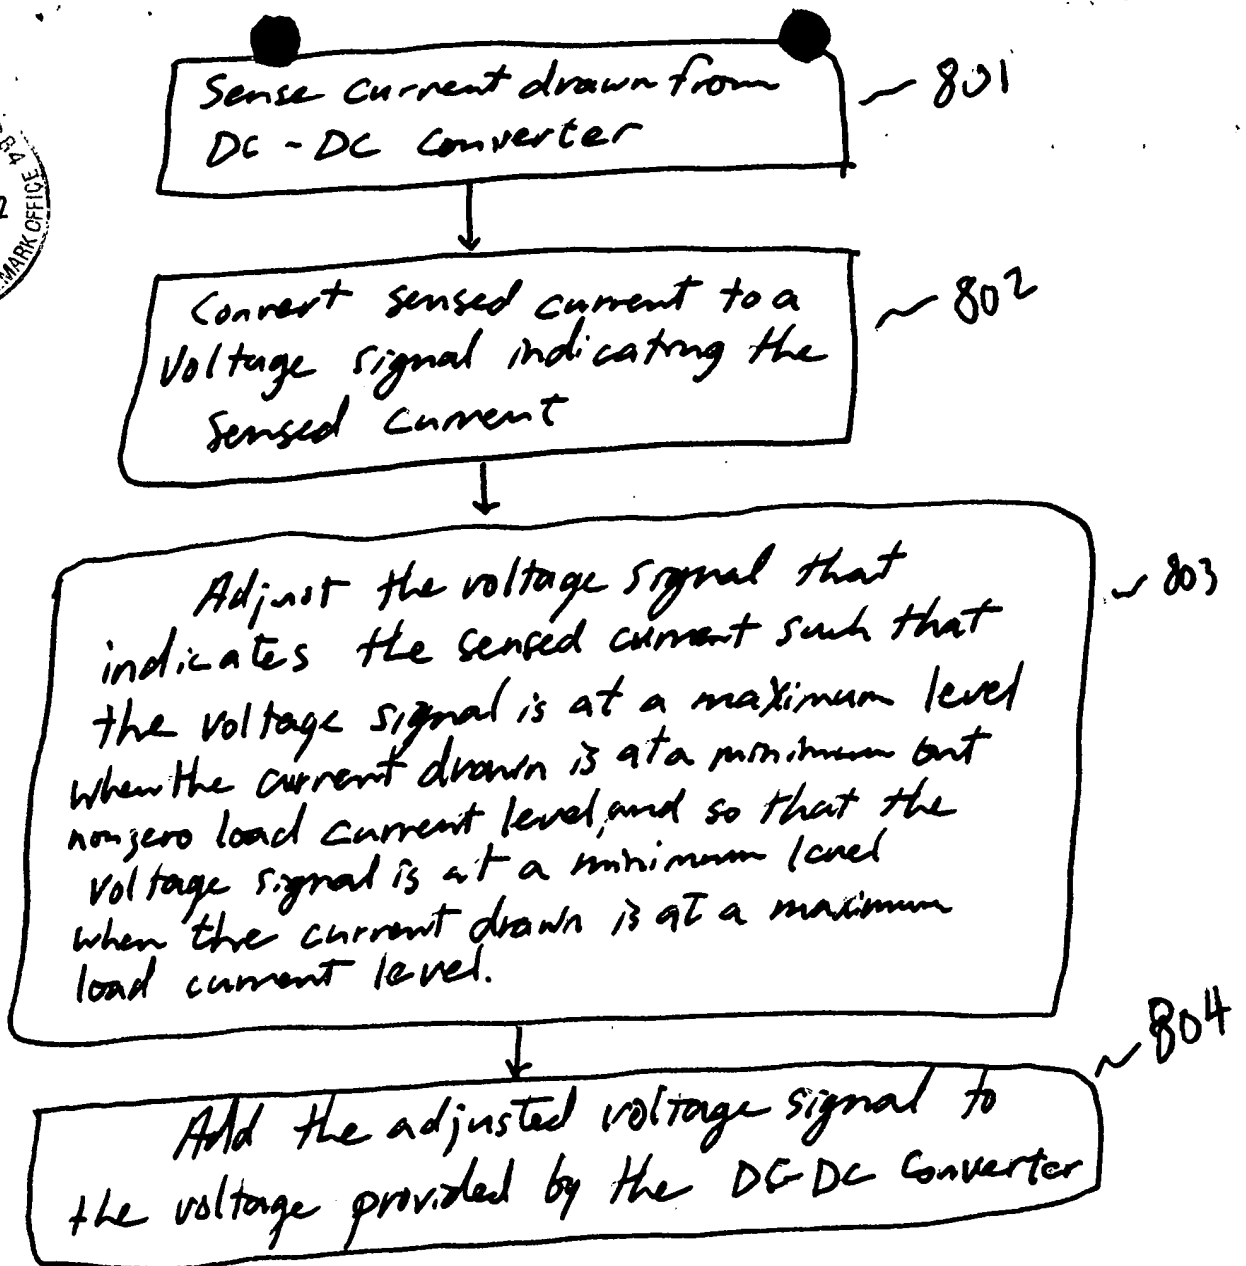 Sense current drawn from
DC-DC Converter
801
Convert sensed current to a
voltage signal indicating the
sensed current
802
Adjust the voltage signal that
indicates the sensed current such that
the voltage signal is at a maximum level
when the current drawn is at a minimum but
nonzero load current level, and so that the
voltage signal is at a minimum level
when the current drawn is at a maximum
load current level.
803
Add the adjusted voltage signal to
the voltage provided by the DC-DC Converter
804
MARK OFFICE